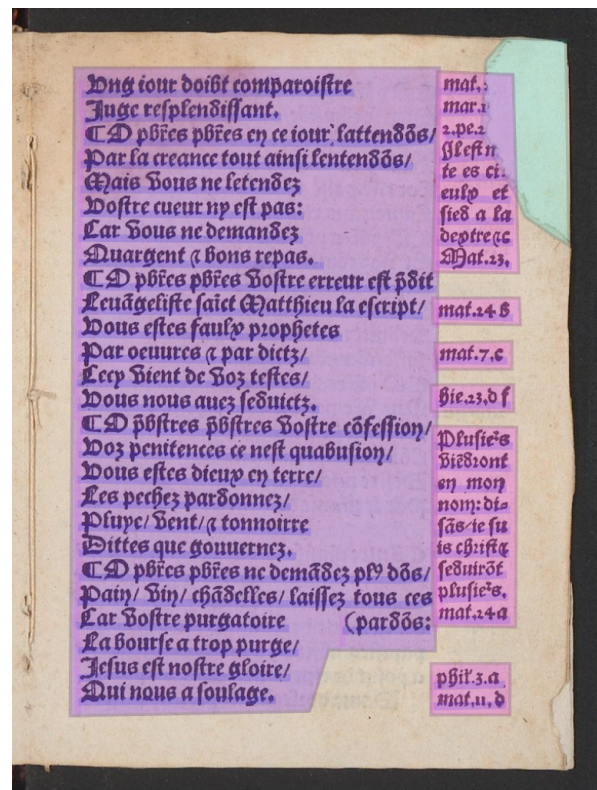 Vng iour doibt comparoistre
Juge resplendissant.
¶ O pb̄res pb̄res en ce iour lattendōs/
Par la creance tout ainsi lentendōs/
Mais vous ne letendez
Vostre cueur ny est pas:
Car vous ne demandez
Quargent ⁊ bons repas.
¶ O pb̄res pb̄res vostre erreur est p̄dit
Leuāgeliste saīct Matthieu la escript/
Vous estes faulx prophetes
Par oeuures ⁊ par dictz/
Cecy vient de voz testes/
Vous nous auez seduictz.
¶ O pb̄stres pb̄stres vostre cōfession/
Voz penitences ce nest quabusion/
Vous estes dieux en terre/
Les pechez pardonnez/
Pluye/ vent/ ⁊ tonnoirre
Dittes que gouuernez.
¶ O pb̄res pb̄res ne demādez plꝰ dōs/
Pain/ vin/ chādelles/ laissez tous ces
Car vostre purgatoire (pardōs:
La bourse a trop purge/
Jesus est nostre gloire/
Qui nous a soulage.
mat.
mar.
2.pe.2
Il est
te es ci
eulx et
sied a la
dextre ⁊c
Mat.23.
mat.24 b
mat.7.c
hie.23.d f
Plusieᷣs
viēdront
en mon
nom: di-
sās/ ie su
is christ ⁊
seduirōt
plusieᷣs.
mat.24 a
phil.3.a
mat.11.d